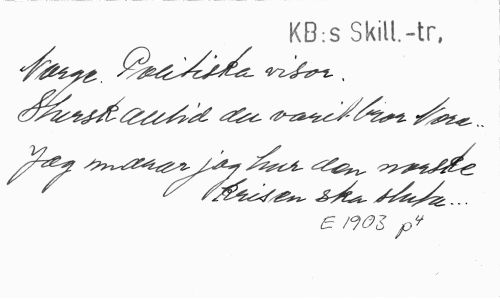 KB:s Skill.-tr,
Norge. Politiska visor.
Sturskalltid du varit bror Nora..
Jag undrar jag hur den norske
krisen ska sluta...
E 1903 p4